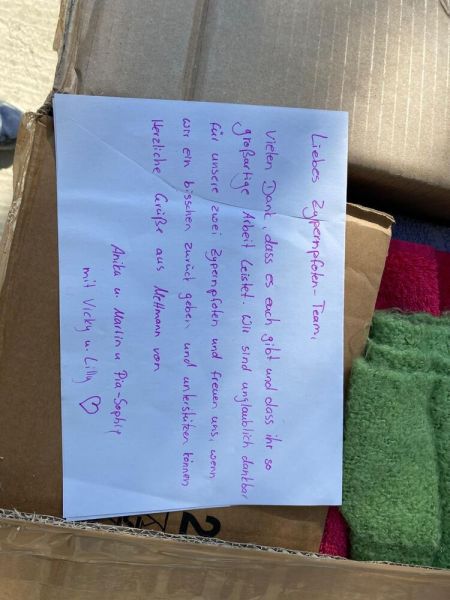 Liebes Zypernpfoten-Team,
Vielen Dank, dass es euch gibt und dass ihr so
großartige Arbeit leistet. Wir sind unglaublich dankbar
für unsere zwei Zypernpfoten und freuen uns, wenn
wir ein bisschen zurück geben und unterstützen können
Herzliche Grüße aus Mettmann von
Anika u. Martin u Pia-Sophie
mit Vicky u. Lilly ♡
2